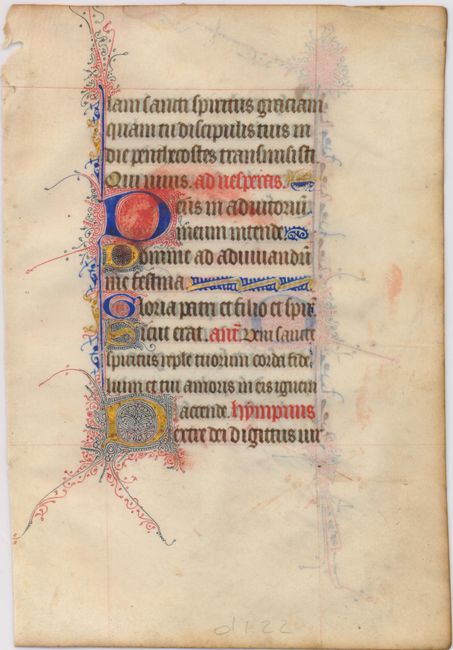 iam sancti spiritus graciam
quam tu discipulis tuis in
die penthecostes transmisisti.
Qui uiuis. ad uesperas.
Deus in adiutoriũ
meum intende
Domine ad adiuuandũ
me festina.
Gloria patri et filio et spir
Sicut erat. ant̃ Veni sancte
spiritus reple tuorum corda fide
lium et tui amoris in eis ignem
accende. hympnus
Dextre dei digittus uir
d 1-22